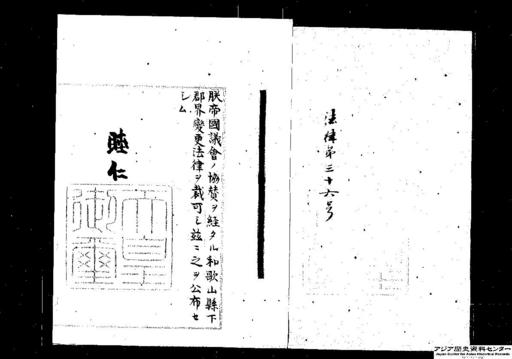 法律第三十六号
朕帝國議會ノ協賛ヲ経タル和歌山縣下
郡界變更法律ヲ裁可シ茲ニ之ヲ公布セ
シム
睦仁
天皇
御璽
アジア歴史資料センター
Japan Center for Asian Historical Records